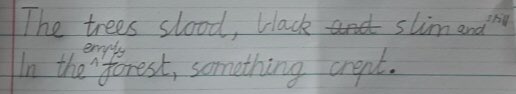 The trees stood, black and slim and still
In the empty forest, something crept.